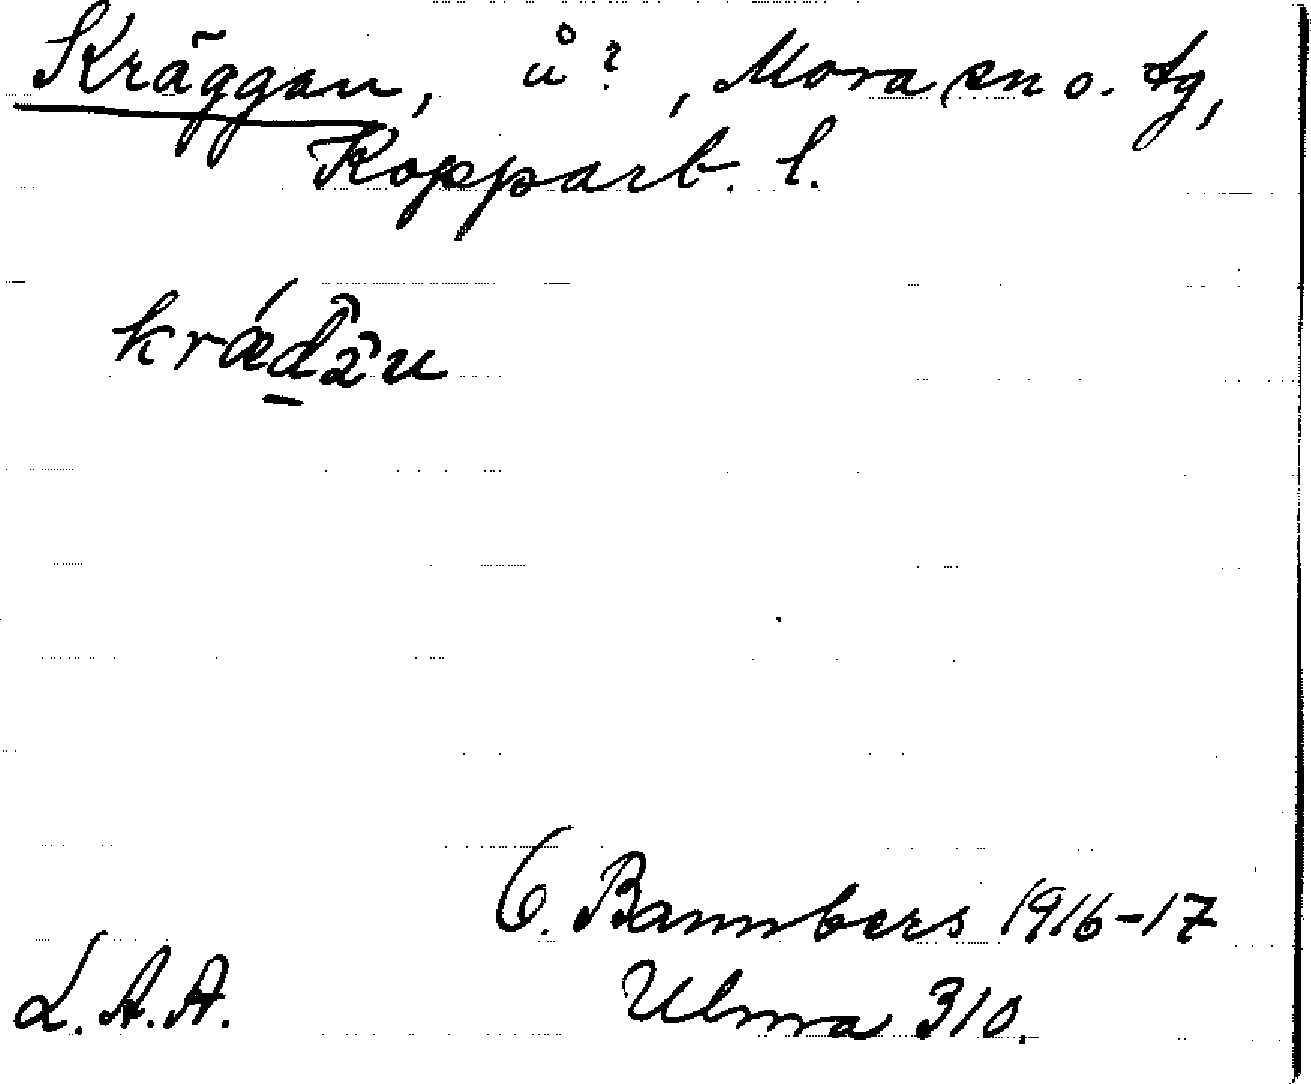 Kräggan, å?, Mora sn o. tg,
Kopparb. l.
O. Bannbers 1916-17
L.A.A. Ulma 310.